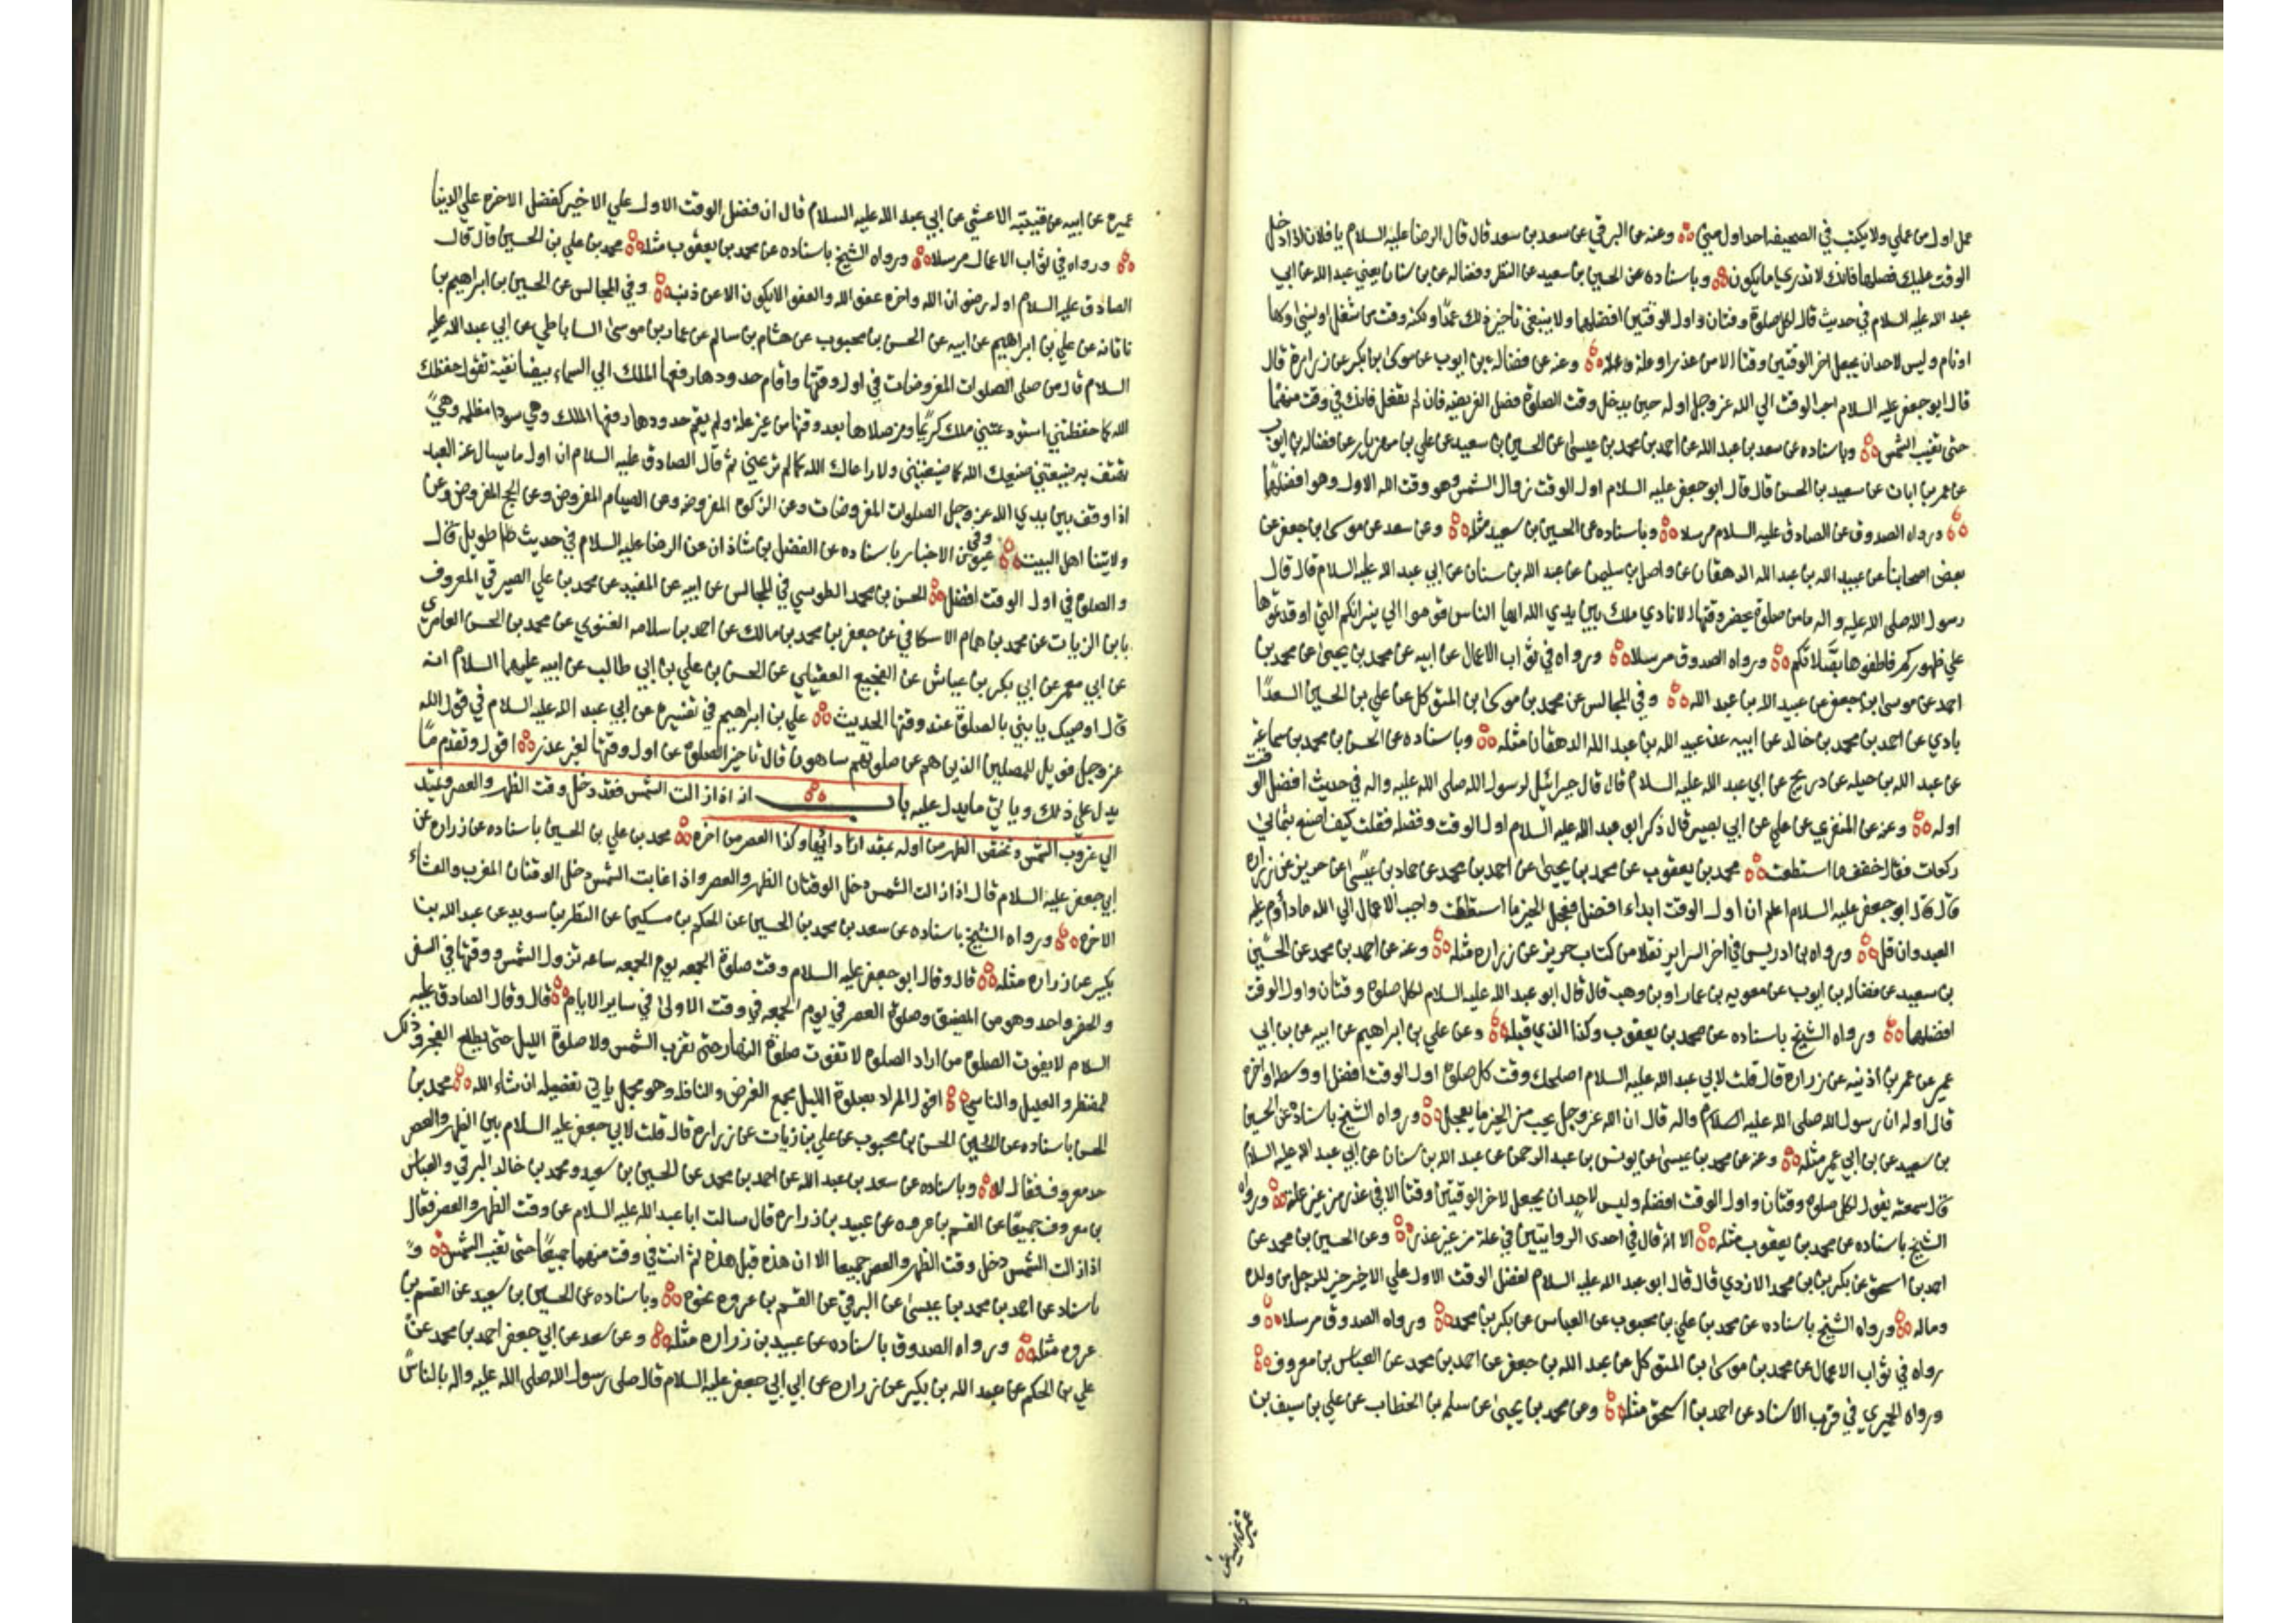 عمل اول من عملي ولا يكتب في الصحيفه احد اول مني وعنه عن البرقي عن سعد بن سعد قال قال الرضا عليه السلام يا فلان اذا دخل
الوقت عليك فصلها فانك لا تدري ما يكون وباسناده عن الحسين بن سعيد عن النظر وفضاله عن بن سنان يعني عبد الله عن ابي
عبد الله عليه السلام في حديث قال لكل صلوة وقتان واول الوقتين افضلهما ولا ينبغي تاخير ذلك عمدا ولكنه وقت من شغل او نسي او سها
او نام وليس لاحد ان يجعل اخر الوقتين وقتا الا من عذر او علة وعنه عن فضاله بن ايوب عن موسى بن بكر عن زرارة قال
قال ابو جعفر عليه السلام احب الوقت الي الله عز وجل اوله حين يدخل وقت الصلوة فصل الفريضه فان لم تفعل فانك في وقت منهما
حتى تغيب الشمس وباسناده عن سعد بن عبد الله عن احمد بن محمد بن عيسى عن الحسين بن سعيد عن علي بن مهزيار عن فضاله بن ايوب
عن عمر بن ابان عن سعيد بن الحسن قال قال ابو جعفر عليه السلام اول الوقت زوال الشمس وهو وقت الله الاول وهو افضلهما
ورواه الصدوق عن الصادق عليه السلام مرسلا وباسناده عن الحسين بن سعيد مثله وعن سعد عن موسى بن جعفر عن
بعض اصحابنا عن عبيد الله بن عبد الله الدهقان عن واصل بن سليمن عن عبد الله بن سنان عن ابي عبد الله عليه السلام قال قال
رسول الله صلى الله عليه واله ما من صلوة يحضر وقتها الا نادي ملك بين يدي الله ايها الناس قوموا الي نيرانكم التي اوقدتموها
علي ظهوركم فاطفوها بصلاتكم ورواه الصدوق مرسلا ورواه في ثواب الاعمال عن ابيه عن محمد بن يحيى عن محمد بن
احمد عن موسى بن جعفر عن عبيد الله بن عبد الله وفي المجالس عن محمد بن موسى بن المتوكل عن علي بن الحسين السعدا
بادي عن احمد بن محمد بن خالد عن ابيه عن عبيد الله بن عبد الله الدهقان مثله وباسناده عن الحسن بن محمد بن سماعة
عن عبد الله بن جبله عن دريح عن ابي عبد الله عليه السلام قال قال جبرائيل لرسول الله صلى الله عليه واله في حديث افضل الوقت
اوله وعنه عن المنقري عن علي عن ابي بصير قال ذكر ابو عبد الله عليه السلام اول الوقت وفضله فقلت كيف اصنع بثماني
ركعات فقال خفف ما استطعت محمد بن يعقوب عن محمد بن يحيى عن احمد بن محمد عن حماد بن عيسى عن حريز عن زراره
قال قال ابو جعفر عليه السلام اعلم ان اول الوقت ابداء افضل فعجل الخير ما استطعت واحب الاعمال الي الله ما داوم عليه
العبد وان قل ورواه بن ادريس في اخر السراير نقلا من كتاب حريز عن زراره مثله وعنه عن احمد بن محمد عن الحسين
بن سعيد عن فضاله بن ايوب عن معويه بن عمار او بن وهب قال قال ابو عبد الله عليه السلام لكل صلوة وقتان واول الوقت
افضلهما ورواه الشيخ باسناده عن محمد بن يعقوب وكذا الذي قبله وعن علي بن ابراهيم عن ابيه عن بن ابي
عمير عن عمر بن اذينه عن زراره قال قلت لابي عبد الله عليه السلام اصلحك وقت كل صلوة اول الوقت افضل او وسطه او اخره
قال اوله ان رسول الله صلى الله عليه السلام واله قال ان الله عز وجل يحب من الخير ما يعجل ورواه الشيخ باسناده عن الحسين
بن سعيد عن بن ابي عمير مثله وعنه عن محمد بن عيسى عن يونس بن عبد الرحمن عن عبد الله بن سنان عن ابي عبد الله عليه السلام
قال سمعته يقول لكل صلوة وقتان واول الوقت افضله وليس لاحد ان يجعل لاخر الوقتين وقتا الا في عذر من غير علة ورواه
الشيخ باسناده عن محمد بن يعقوب مثله الا انه قال في احدى الروايتين في علة من غير عذر وعن الحسين بن محمد عن
احمد بن اسحق عن بكر بن بن محمد الازدي قال قال ابو عبد الله عليه السلام لفضل الوقت الاول علي الاخير خير للرجل من ولده
وماله ورواه الشيخ باسناده عن محمد بن علي بن محبوب عن العباس عن بكر بن محمد ورواه الصدوق مرسلا و
رواه في ثواب الاعمال عن محمد بن موسى بن المتوكل عن عبد الله بن جعفر عن احمد بن محمد عن العباس بن معروف
ورواه الحميري في قرب الاسناد عن احمد بن اسحق مثله وعن محمد بن يحيى عن سلمه بن الخطاب عن علي بن سيف بن
عميرة عن ابيه عن قتيبة الاعشي عن ابي عبد الله عليه السلام قال ان فضل الوقت الاول علي الاخير كفضل الاخرة علي الدينا
ورواه في ثواب الاعمال مرسلا ورواه الشيخ باسناده عن محمد بن يعقوب مثله محمد بن علي بن الحسين قال قال
الصادق عليه السلام اوله رضوان الله واخره عفو الله والعفو لا يكون الا عن ذنب وفي المجالس عن الحسين بن ابراهيم بن
ناتانه عن علي بن ابراهيم عن ابيه عن الحسن بن محبوب عن هشام بن سالم عن عمار بن موسى الساباطي عن ابي عبد الله عليه
السلام قال من صلى الصلوات المفروضات في اول وقتها واقام حدودها رفعها الملك الي السماء بيضا نقية تقول حفظك
الله كما حفظتني استودعتني ملك كريما ومن صلاها بعد وقتها من غير علة ولم يقم حدودها رفعها الملك وهي سودا مظلمه وهي
تهتف به ضيعتني ضيعك الله كما ضيعتني ولا راعاك الله كما لم ترعني ثم قال الصادق عليه السلام ان اول ما يسال عنه العبد
اذا وقف بين يدي الله عز وجل الصلوات المفروضات وعن الزكوة المفروضه وعن الصيام المفروض وعن الحج المفروض وعن
ولايتنا اهل البيت وفي عيون الاخبار باسناده عن الفضل بن شاذان عن الرضا عليه السلام في حديث طويل قال
والصلوة في اول الوقت افضل الحسن بن محمد الطوسي في المجالس عن ابيه عن المفيد عن محمد بن علي الصيرفي المعروف
بابن الزيات عن محمد بن همام الاسكافي عن جعفر بن محمد بن مالك عن احمد بن سلامه الغنوي عن محمد بن الحسن العامري
عن ابي معمر عن ابي بكر بن عياش عن الفجيع العقيلي عن الحسن بن علي بن ابي طالب عن ابيه عليهما السلام انه
قال اوصيك يا بني بالصلوة عند وقتها الحديث علي بن ابراهيم في تفسيره عن ابي عبد الله عليه السلام في قول الله
عز وجل فويل للمصلين الذين هم عن صلوتهم ساهون قال تاخير الصلوة عن اول وقتها لغير عذر اقول وتقدم ما
يدل علي ذلك وياتي ما يدل عليه باب انه اذا زالت الشمس فقد دخل وقت الظهر والعصر ويمتد
الي غروب الشمس وتختص الظهر من اوله بمقدار ادائها وكذا العصر من اخره محمد بن علي بن الحسين باسناده عن زراره عن
ابي جعفر عليه السلام قال اذا زالت الشمس دخل الوقتان الظهر والعصر واذا غابت الشمس دخل الوقتان المغرب والعشاء
الاخره ورواه الشيخ باسناده عن سعد بن محمد بن الحسين عن الحكم بن مسكين عن النظر بن سويد عن عبد الله بن
بكير عن زراره مثله قال وقال ابو جعفر عليه السلام وقت صلوة الجمعه يوم الجمعه ساعه تزول الشمس ووقتها في السفر
والحضر واحد وهو من المضيق وصلوة العصر في يوم الجمعه في وقت الاولى في ساير الايام قال وقال الصادق عليه
السلام لا يفوت الصلوة من اراد الصلوة لا تفوت صلوة النهار حتى تغرب الشمس ولا صلوة الليل حتى يطلع الفجر وذلك
للمضطر والعليل والناسي اقول المراد بصلوة الليل يجمع الفرض والنافله وهو مجمل ياتي تفصيله ان شاء الله محمد بن
الحسن باسناده عن الحسن بن محبوب عن علي بن زيات عن زراره قال قلت لابي جعفر عليه السلام بين الظهر والعصر
حد معروف فقال لا وباسناده عن سعد بن عبد الله عن احمد بن محمد عن الحسين بن سعيد ومحمد بن خالد البرقي والعباس
بن معروف جميعا عن القسم بن عروه عن عبيد بن زراره قال سالت ابا عبد الله عليه السلام عن وقت الظهر والعصر فقال
اذا زالت الشمس دخل وقت الظهر والعصر جميعا الا ان هذه قبل هذه ثم انت في وقت منهما جميعا حتى تغيب الشمس و
باسناد عن احمد بن محمد بن عيسى عن البرقي عن القسم بن عروه نحوه وباسناده عن الحسين بن سعيد عن القسم بن
عروه مثله ورواه الصدوق باسناده عن عبيد بن زراره مثله وعن سعد عن ابي جعفر احمد بن محمد عن
علي بن الحكم عن عبد الله بن بكير عن زراره عن ابي ابي جعفر عليه السلام قال صلى رسول الله صلى الله عليه واله بالناس